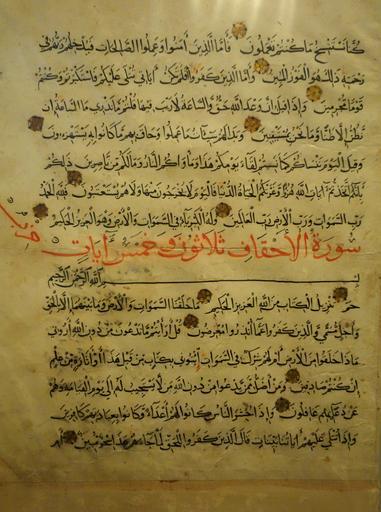 كنا نستنسخ ما كنتم تعملون فأما الذين آمنوا وعملوا الصالحات فيدخلهم ربهم في
رحمته ذلك هو الفوز المبين وأما الذين كفروا أفلم تكن آياتي تتلى عليكم فاستكبرتم وكنتم
قوما مجرمين وإذا قيل إن وعد الله حق والساعة لا ريب فيها قلتم ما ندري ما الساعة إن
نظن إلا ظنا وما نحن بمستيقنين وبدا لهم سيئات ما عملوا وحاق بهم ما كانوا به يستهزءون
وقيل اليوم ننساكم كما نسيتم لقاء يومكم هذا ومأواكم النار وما لكم من ناصرين ذلكم
بأنكم اتخذتم آيات الله هزوا وغرتكم الحياة الدنيا فاليوم لا يخرجون منها ولا هم يستعتبون فلله الحمد
رب السموات ورب الأرض رب العالمين وله الكبرياء في السموات والأرض وهو العزيز الحكيم
سورة الأحقاف ثلاثون وخمس آيات
بسم الله الرحمن الرحيم
حم تنزيل الكتاب من الله العزيز الحكيم ما خلقنا السموات والأرض وما بينهما إلا بالحق
وأجل مسمى والذين كفروا عما أنذروا معرضون قل أرأيتم ما تدعون من دون الله أروني
ماذا خلقوا من الأرض أم لهم شرك في السموات ائتوني بكتاب من قبل هذا أو أثارة من علم
إن كنتم صادقين ومن أضل ممن يدعوا من دون الله من لا يستجيب له إلى يوم القيامة وهم
عن دعائهم غافلون وإذا حشر الناس كانوا لهم أعداء وكانوا بعبادتهم كافرين
وإذا تتلى عليهم آياتنا بينات قال الذين كفروا للحق لما جاءهم هذا سحر مبين أم